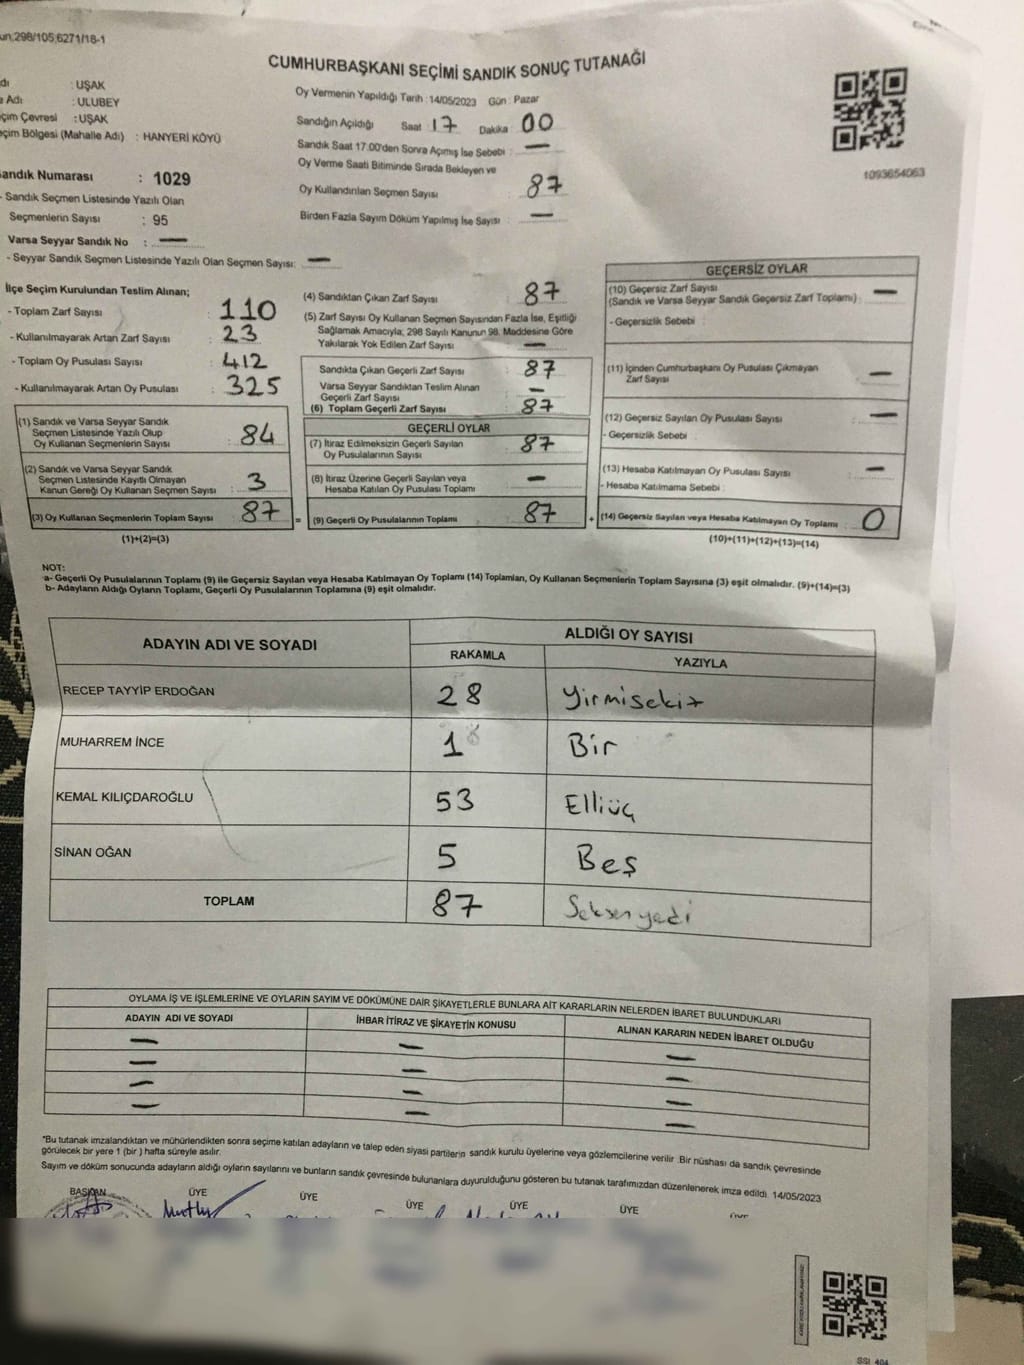 un,298/105,6271/18-1
CUMHURBAŞKANI SEÇİMİ SANDIK SONUÇ TUTANAĞI
dı : UŞAK
e Adı : ULUBEY
çim Çevresi : UŞAK
eçim Bölgesi (Mahalle Adı) : HANYERİ KÖYÜ
andık Numarası : 1029
- Sandık Seçmen Listesinde Yazılı Olan
Seçmenlerin Sayısı : 95
Varsa Seyyar Sandık No : —
- Seyyar Sandık Seçmen Listesinde Yazılı Olan Seçmen Sayısı: —
Oy Vermenin Yapıldığı Tarih : 14/05/2023 Gün : Pazar
Sandığın Açıldığı Saat 17 Dakika 00
Sandık Saat 17.00'den Sonra Açımış İse Sebebi : —
Oy Verme Saati Bitiminde Sırada Bekleyen ve
Oy Kullandırılan Seçmen Sayısı 87
Birden Fazla Sayım Döküm Yapılmış İse Sayısı : —
1093654063
İlçe Seçim Kurulundan Teslim Alınan;
- Toplam Zarf Sayısı : 110
- Kullanılmayarak Artan Zarf Sayısı : 23
- Toplam Oy Pusulası Sayısı : 412
- Kullanılmayarak Artan Oy Pusulası : 325
(1) Sandık ve Varsa Seyyar Sandık
Seçmen Listesinde Yazılı Olup
Oy Kullanan Seçmenlerin Sayısı : 84
(2) Sandık ve Varsa Seyyar Sandık
Seçmen Listesinde Kayıtlı Olmayan
Kanun Gereği Oy Kullanan Seçmen Sayısı : 3
(3) Oy Kullanan Seçmenlerin Toplam Sayısı : 87
(1)+(2)=(3)
(4) Sandıktan Çıkan Zarf Sayısı 87
(5) Zarf Sayısı Oy Kullanan Seçmen Sayısından Fazla İse, Eşitliği
Sağlamak Amacıyla; 298 Sayılı Kanunun 98. Maddesine Göre
Yakılarak Yok Edilen Zarf Sayısı —
Sandıkta Çıkan Geçerli Zarf Sayısı : 87
Varsa Seyyar Sandıktan Teslim Alınan
Geçerli Zarf Sayısı : —
(6) Toplam Geçerli Zarf Sayısı : 87
GEÇERLİ OYLAR
(7) İtiraz Edilmeksizin Geçerli Sayılan
Oy Pusulalarının Sayısı : 87
(8) İtiraz Üzerine Geçerli Sayılan veya
Hesaba Katılan Oy Pusulası Toplamı : —
= (9) Geçerli Oy Pusulalarının Toplamı : 87
GEÇERSİZ OYLAR
(10) Geçersiz Zarf Sayısı
(Sandık ve Varsa Seyyar Sandık Geçersiz Zarf Toplamı) : —
- Geçersizlik Sebebi :
(11) İçinden Cumhurbaşkanı Oy Pusulası Çıkmayan
Zarf Sayısı : —
(12) Geçersiz Sayılan Oy Pusulası Sayısı : —
- Geçersizlik Sebebi :
(13) Hesaba Katılmayan Oy Pusulası Sayısı : —
- Hesaba Katılmama Sebebi :
+ (14) Geçersiz Sayılan veya Hesaba Katılmayan Oy Toplamı : 0
(10)+(11)+(12)+(13)=(14)
NOT:
a- Geçerli Oy Pusulalarının Toplamı (9) ile Geçersiz Sayılan veya Hesaba Katılmayan Oy Toplamı (14) Toplamları, Oy Kullanan Seçmenlerin Toplam Sayısına (3) eşit olmalıdır. (9)+(14)=(3)
b- Adayların Aldığı Oyların Toplamı, Geçerli Oy Pusulalarının Toplamına (9) eşit olmalıdır.
ADAYIN ADI VE SOYADI ALDIĞI OY SAYISI
RAKAMLA YAZIYLA
RECEP TAYYİP ERDOĞAN 28 Yirmisekiz
MUHARREM İNCE 1 Bir
KEMAL KILIÇDAROĞLU 53 Elliüç
SİNAN OĞAN 5 Beş
TOPLAM 87 Seksenyedi
OYLAMA İŞ VE İŞLEMLERİNE VE OYLARIN SAYIM VE DÖKÜMÜNE DAİR ŞİKAYETLERLE BUNLARA AİT KARARLARIN NELERDEN İBARET BULUNDUKLARI
ADAYIN ADI VE SOYADI İHBAR İTİRAZ VE ŞİKAYETİN KONUSU ALINAN KARARIN NEDEN İBARET OLDUĞU
— — —
— — —
— — —
— — —
*Bu tutanak imzalandıktan ve mühürlendikten sonra seçime katılan adayların ve talep eden siyasi partilerin sandık kurulu üyelerine veya gözlemcilerine verilir. Bir nüshası da sandık çevresinde
görülecek bir yere 1 (bir ) hafta süreyle asılır.
Sayım ve döküm sonucunda adayların aldığı oyların sayılarını ve bunların sandık çevresinde bulunanlara duyurulduğunu gösteren bu tutanak tarafımızdan düzenlenerek imza edildi. 14/05/2023
BAŞKAN ÜYE ÜYE ÜYE ÜYE ÜYE ÜYE
SSI 404